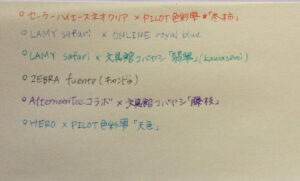 ○ セーラーハイエースネオクリア × PILOT色彩雫 #「冬柿」
○ LAMY safari × ONLINE royal blue
○ LAMY safari × 文具館コバヤシ「翡翠」(kawasemi)
○ ZEBRA fuente (キャンドゥ)
○ AfternoonTeaコラボ × 文具館コバヤシ「藤枝」
○ HERO × PILOT色彩雫「天色」